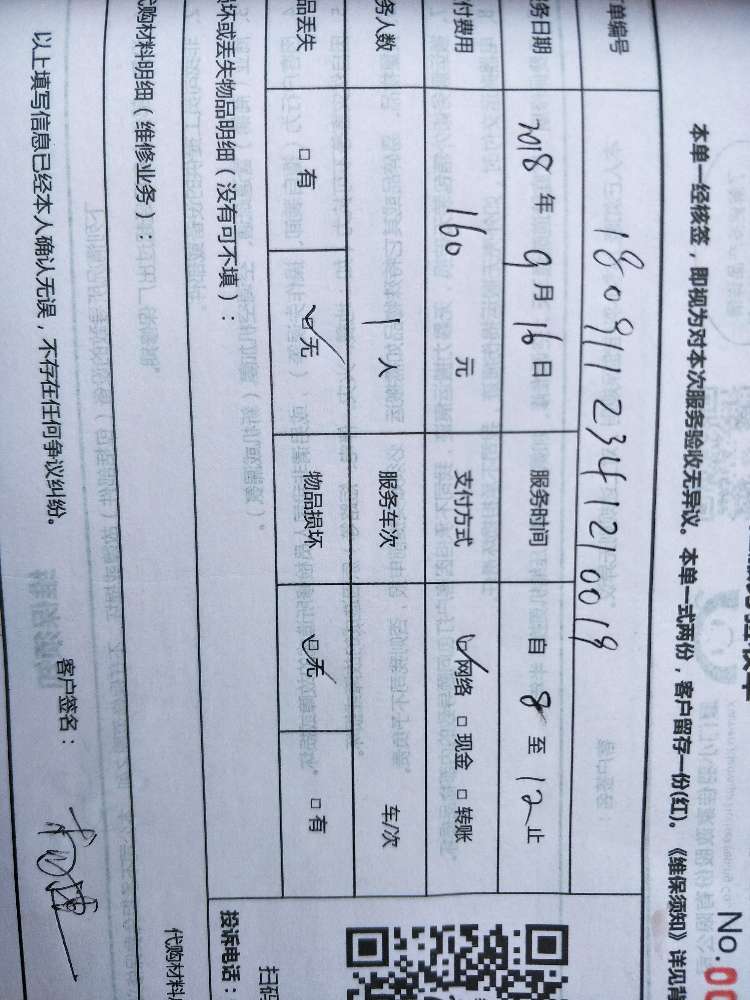 No.00
本单一经核签，即视为对本次服务验收无异议。本单一式两份，客户留存一份(红)。《维保须知》详见背
单编号 1809112341210019
务日期 2018 年 9 月 16 日 服务时间 自 8 至 12 止
付费用 160 元 支付方式 ☑网络 □现金 □转账
务人数 1 人 服务车次 车/次
品丢失 □有 ☑无 物品损坏 ☑无 □有
坏或丢失物品明细（没有可不填）：
投诉电话：
扫码
代购材料明细（维修业务）：
代购材料
以上填写信息已经本人确认无误，不存在任何争议纠纷。
客户签名：